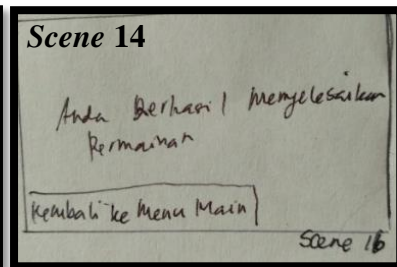 Scene 14
Anda Berhasil menyelesaikan
Permainan
Kembali ke Menu Main
Scene 16